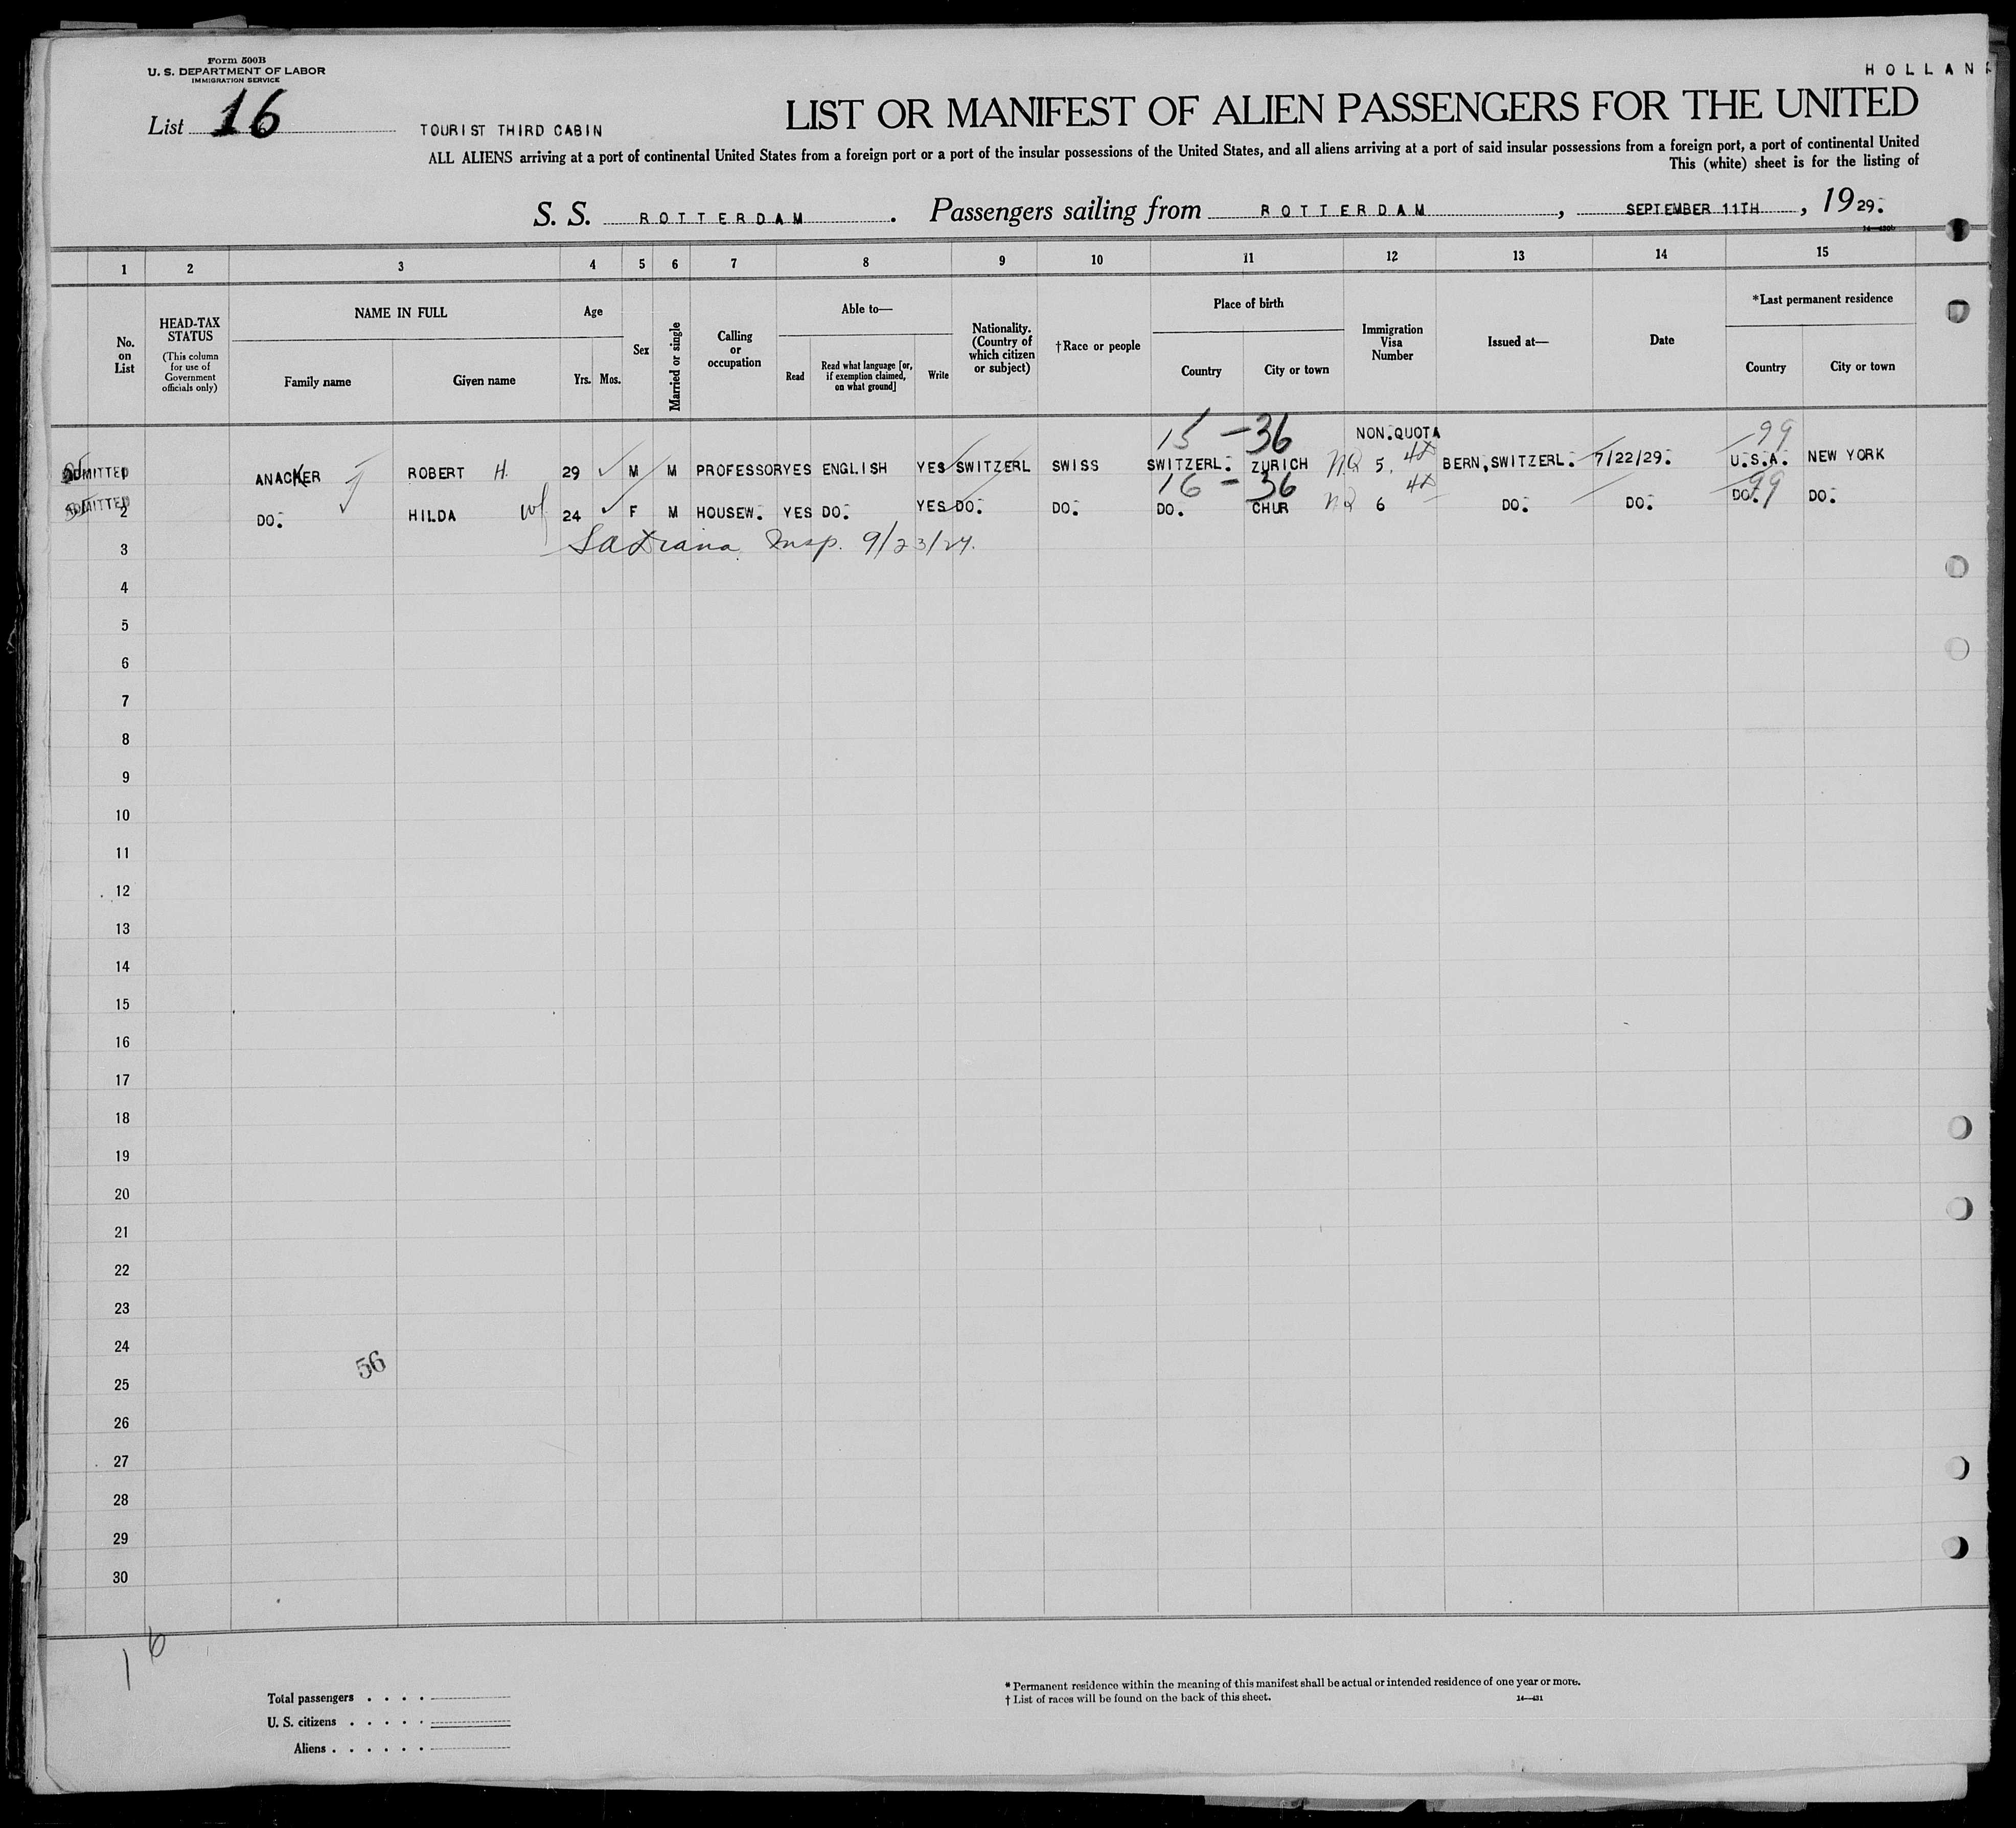 Form 500B
U. S. DEPARTMENT OF LABOR
IMMIGRATION SERVICE
HOLLAN
List 16
TOURIST THIRD CABIN
LIST OR MANIFEST OF ALIEN PASSENGERS FOR THE UNITED
ALL ALIENS arriving at a port of continental United States from a foreign port or a port of the insular possessions of the United States, and all aliens arriving at a port of said insular possessions from a foreign port, a port of continental United
This (white) sheet is for the listing of
S. S. ROTTERDAM. Passengers sailing from ROTTERDAM, SEPTEMBER 11TH, 1929.
14—430b
1 2 3 4 5 6 7 8 9 10 11 12 13 14 15
No. on List
HEAD-TAX STATUS
(This column for use of Government officials only)
NAME IN FULL
Family name
Given name
Age
Yrs. Mos.
Sex
Married or single
Calling or occupation
Able to—
Read
Read what language [or, if exemption claimed, on what ground]
Write
Nationality. (Country of which citizen or subject)
†Race or people
Place of birth
Country
City or town
Immigration Visa Number
Issued at—
Date
*Last permanent residence
Country
City or town
15 - 36 NON.QUOTA 99
ADMITTED 1 ANACKER ROBERT H. 29 M M PROFESSOR YES ENGLISH YES SWITZERL SWISS SWITZERL. ZURICH NQ 5. 4x BERN,SWITZERL. 7/22/29. U.S.A. NEW YORK
16 - 36 4x 99
ADMITTED 2 DO. HILDA wf 24 F M HOUSEW. YES DO. YES DO. DO. DO. CHUR NQ 6 DO. DO. DO. DO.
3 Insp. 9/23/29.
4
5
6
7
8
9
10
11
12
13
14
15
16
17
18
19
20
21
22
23
24
56
25
26
27
28
29
30
16
Total passengers
U. S. citizens
Aliens
* Permanent residence within the meaning of this manifest shall be actual or intended residence of one year or more.
† List of races will be found on the back of this sheet.
14—431